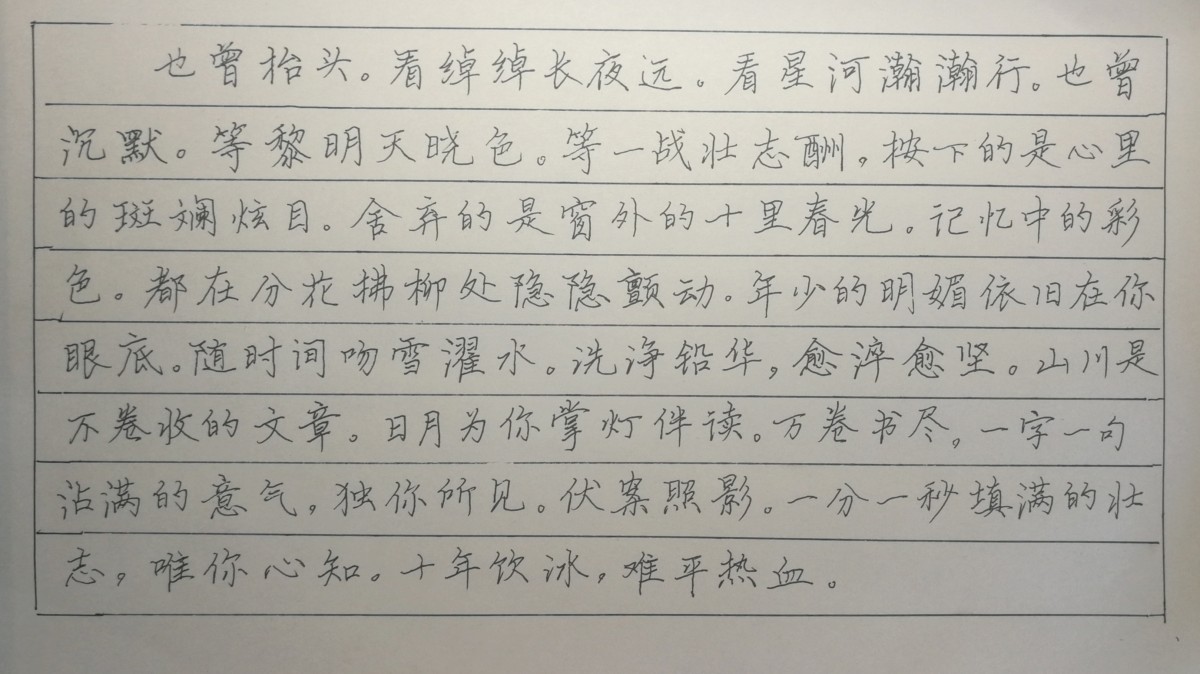 也曾抬头。看绰绰长夜远。看星河瀚瀚行。也曾
沉默。等黎明天晓色。等一战壮志酬，按下的是心里
的斑斓炫目。舍弃的是窗外的十里春光。记忆中的彩
色。都在分花拂柳处隐隐颤动。年少的明媚依旧在你
眼底。随时间吻雪濯水。洗净铅华，愈淬愈坚。山川是
不卷收的文章。日月为你掌灯伴读。万卷书尽，一字一句
沾满的意气，独你所见。伏案照影。一分一秒填满的壮
志，唯你心知。十年饮冰，难平热血。